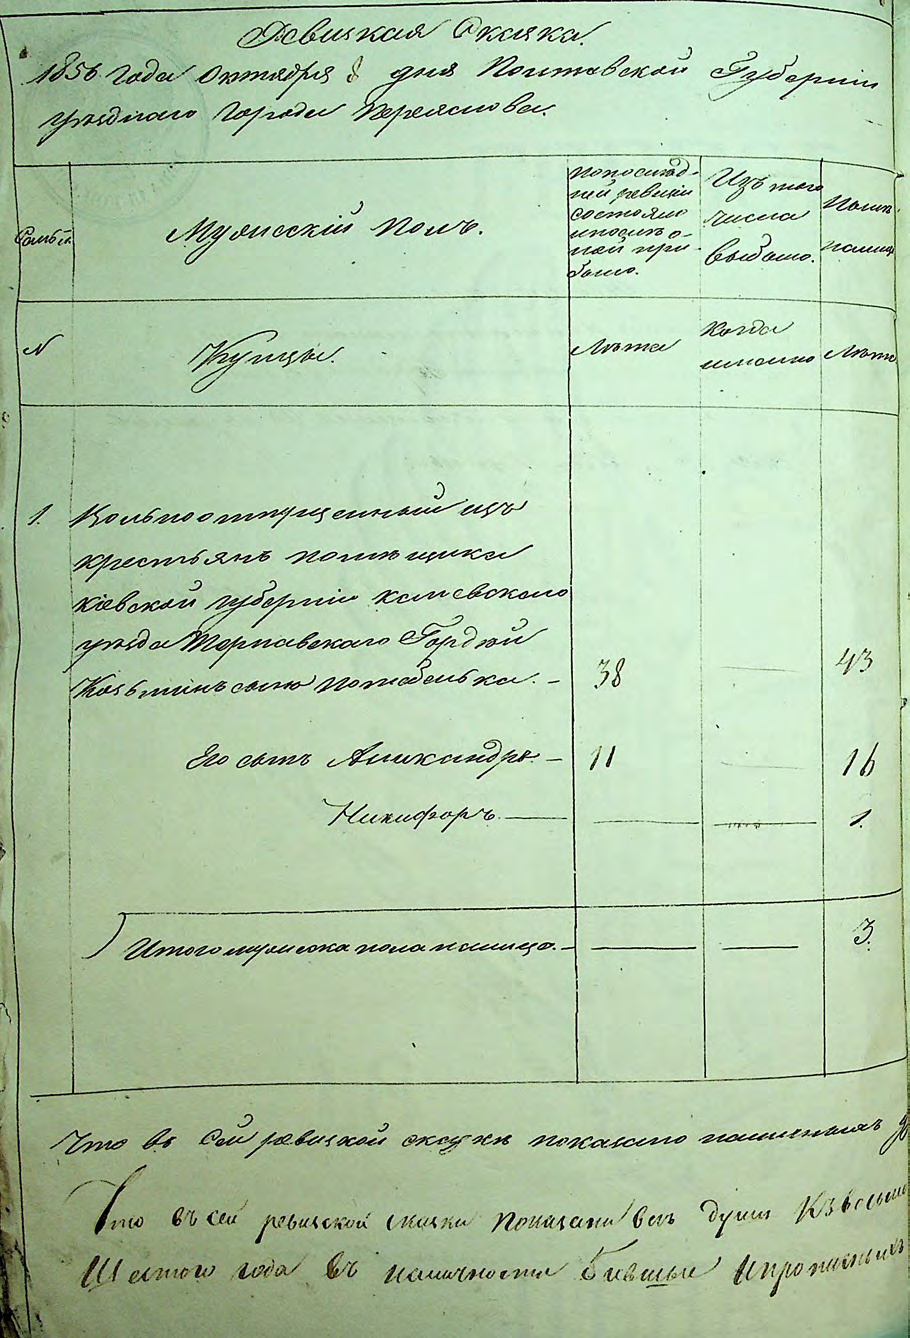 Ревизская Сказка.
1856 года Октября 8 дня Полтавской Губернии
уезднаго Города Переяслова.
Семьи
Мужескій полъ.
По послѣд-
ней ревизіи
состояло
и послѣ о-
ной при-
было.
Изъ того
числа
выбыло.
Нынѣ
налице
N
Купцы.
Лѣта
Когда
именно
Лѣта
1. Вольноотпущенный изъ
крестьянъ помѣщика
Кіевской губерніи Каневскаго
уѣзда Терпавскаго Гордѣй
Козьминъ сынъ — 38 — 43
Его сынъ Александръ — 11 — 16
Никифоръ — — — 1.
Итого мужеска пола налицо. — — — 3.
Что въ сей ревизской сказкѣ показано
Что въ сей ревизской сказки показани всѣ души
Шестого года въ наличности бившыи